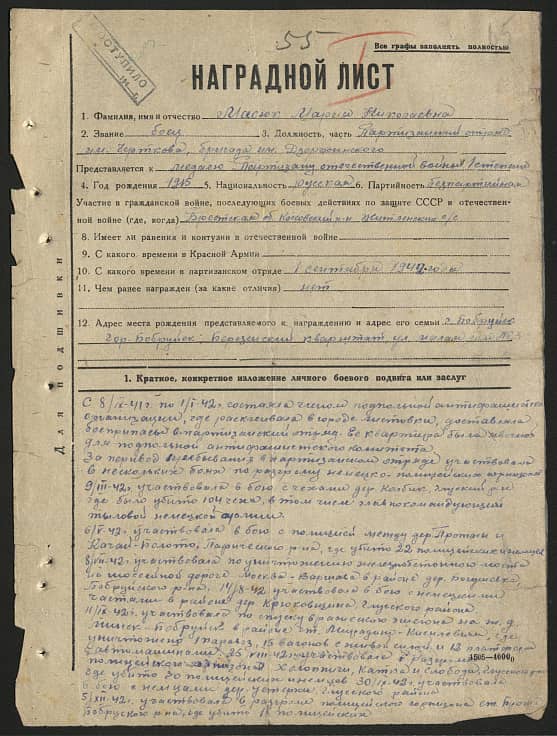 ПОСТУПИЛО
55
Все графы заполнять полностью
НАГРАДНОЙ ЛИСТ
1. Фамилия, имя и отчество Масюк Мария Николаевна
2. Звание боец 3. Должность, часть Партизанский отряд
им. Чорткова, бригада им. Дзержинского
Представляется к медалью Партизану отечественной войны I степени
4. Год рождения 1915 5. Национальность Русская 6. Партийность беспартийная
Участие в гражданской войне, последующих боевых действиях по защите СССР и отечествен-
ной войне (где, когда) Брестская об. Косовский р-н с/с
8. Имеет ли ранения и контузии в отечественной войне
9. С какого времени в Красной Армии
10. С какого времени в партизанском отряде 1 сентября 1942 года
11. Чем ранее награжден (за какие отличия) нет
12. Адрес места рождения представляемого к награждению и адрес его семьи г. Бобруйск
Гор. Бобруйск; Березинский ул.
Для подшивки
1. Краткое, конкретное изложение личного боевого подвига или заслуг
С 8/IX-41 г. по 1/ -42 г. состояла членом подпольной антифашистской
организации, где расклеивала в городе листовки, доставляла
боеприпасы в партизанский отряд. Ее квартира была явочной
для подпольной антифашистского комитета.
За период пребывания в партизанском отряде участвовала
в нескольких боях по разгрому немецко-полицейских гарнизонов
9/ -42 г. участвовала в бою с чехами дер. Глуский р-н
где было убито 104 чеха, в том числе главнокомандующий
тыловой немецкой армии.
6/ -42 г. участвовала в бою с полицией между дер. Протасы и
Качай-Болото, Паричского р-на, где убито 22 полицейских и немцев
8/ -42 г. участвовала по уничтожению железобетонного моста
на шоссейной дороге Москва-Варшава в районе дер.
Бобруйского р-на. 14/ -42 г. участвовала в бою с немецкими
частями в районе дер. Крюковщина, Глусского района.
11/ -42 г. участвовала по спуску вражеского эшелона на ж.д.
Минск-Бобруйск в районе ст. где
уничтожено 1 паровоз, 15 вагонов с живой силой и 13 платформ
с автомашинами. 25/ -42 г. участвовала в разгроме
полицейского гарнизона Холопничи, Катка и Слобода,
где убито 30 полицейских и немцев 30/ -42 г. участвовала
в бою с немцами дер. Устерхи Глусского района
5/XII-42 г. участвовала в разгроме полицейского гарнизона ст.
Бобруйского р-на, где убито 18 полицейских
1505—4000